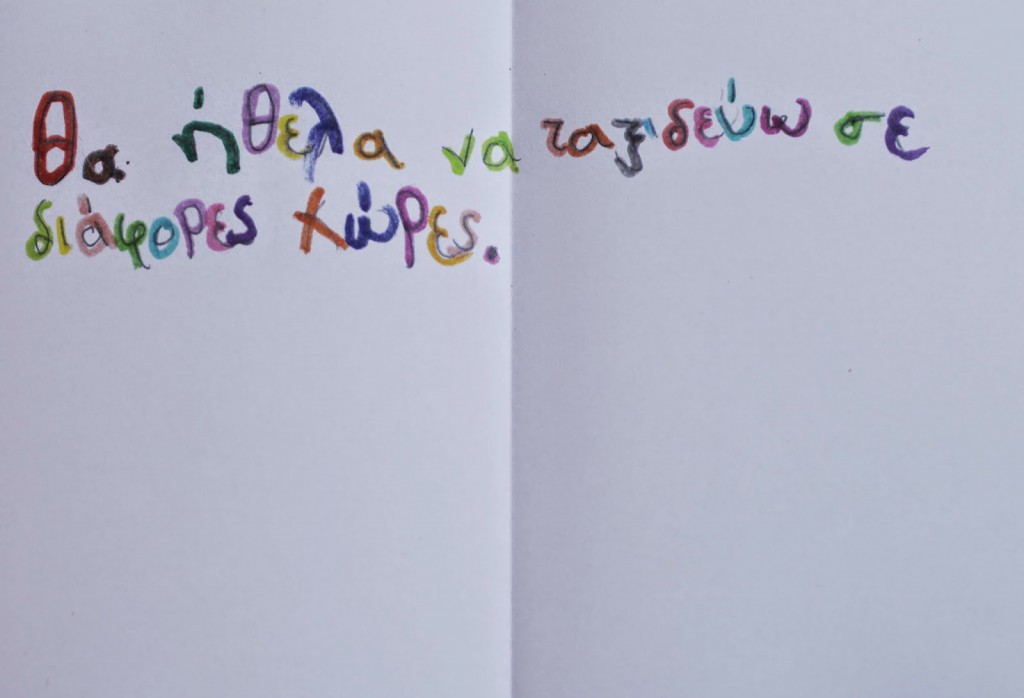 Θα ήθελα να ταξιδεύω σε
διάφορες χώρες.